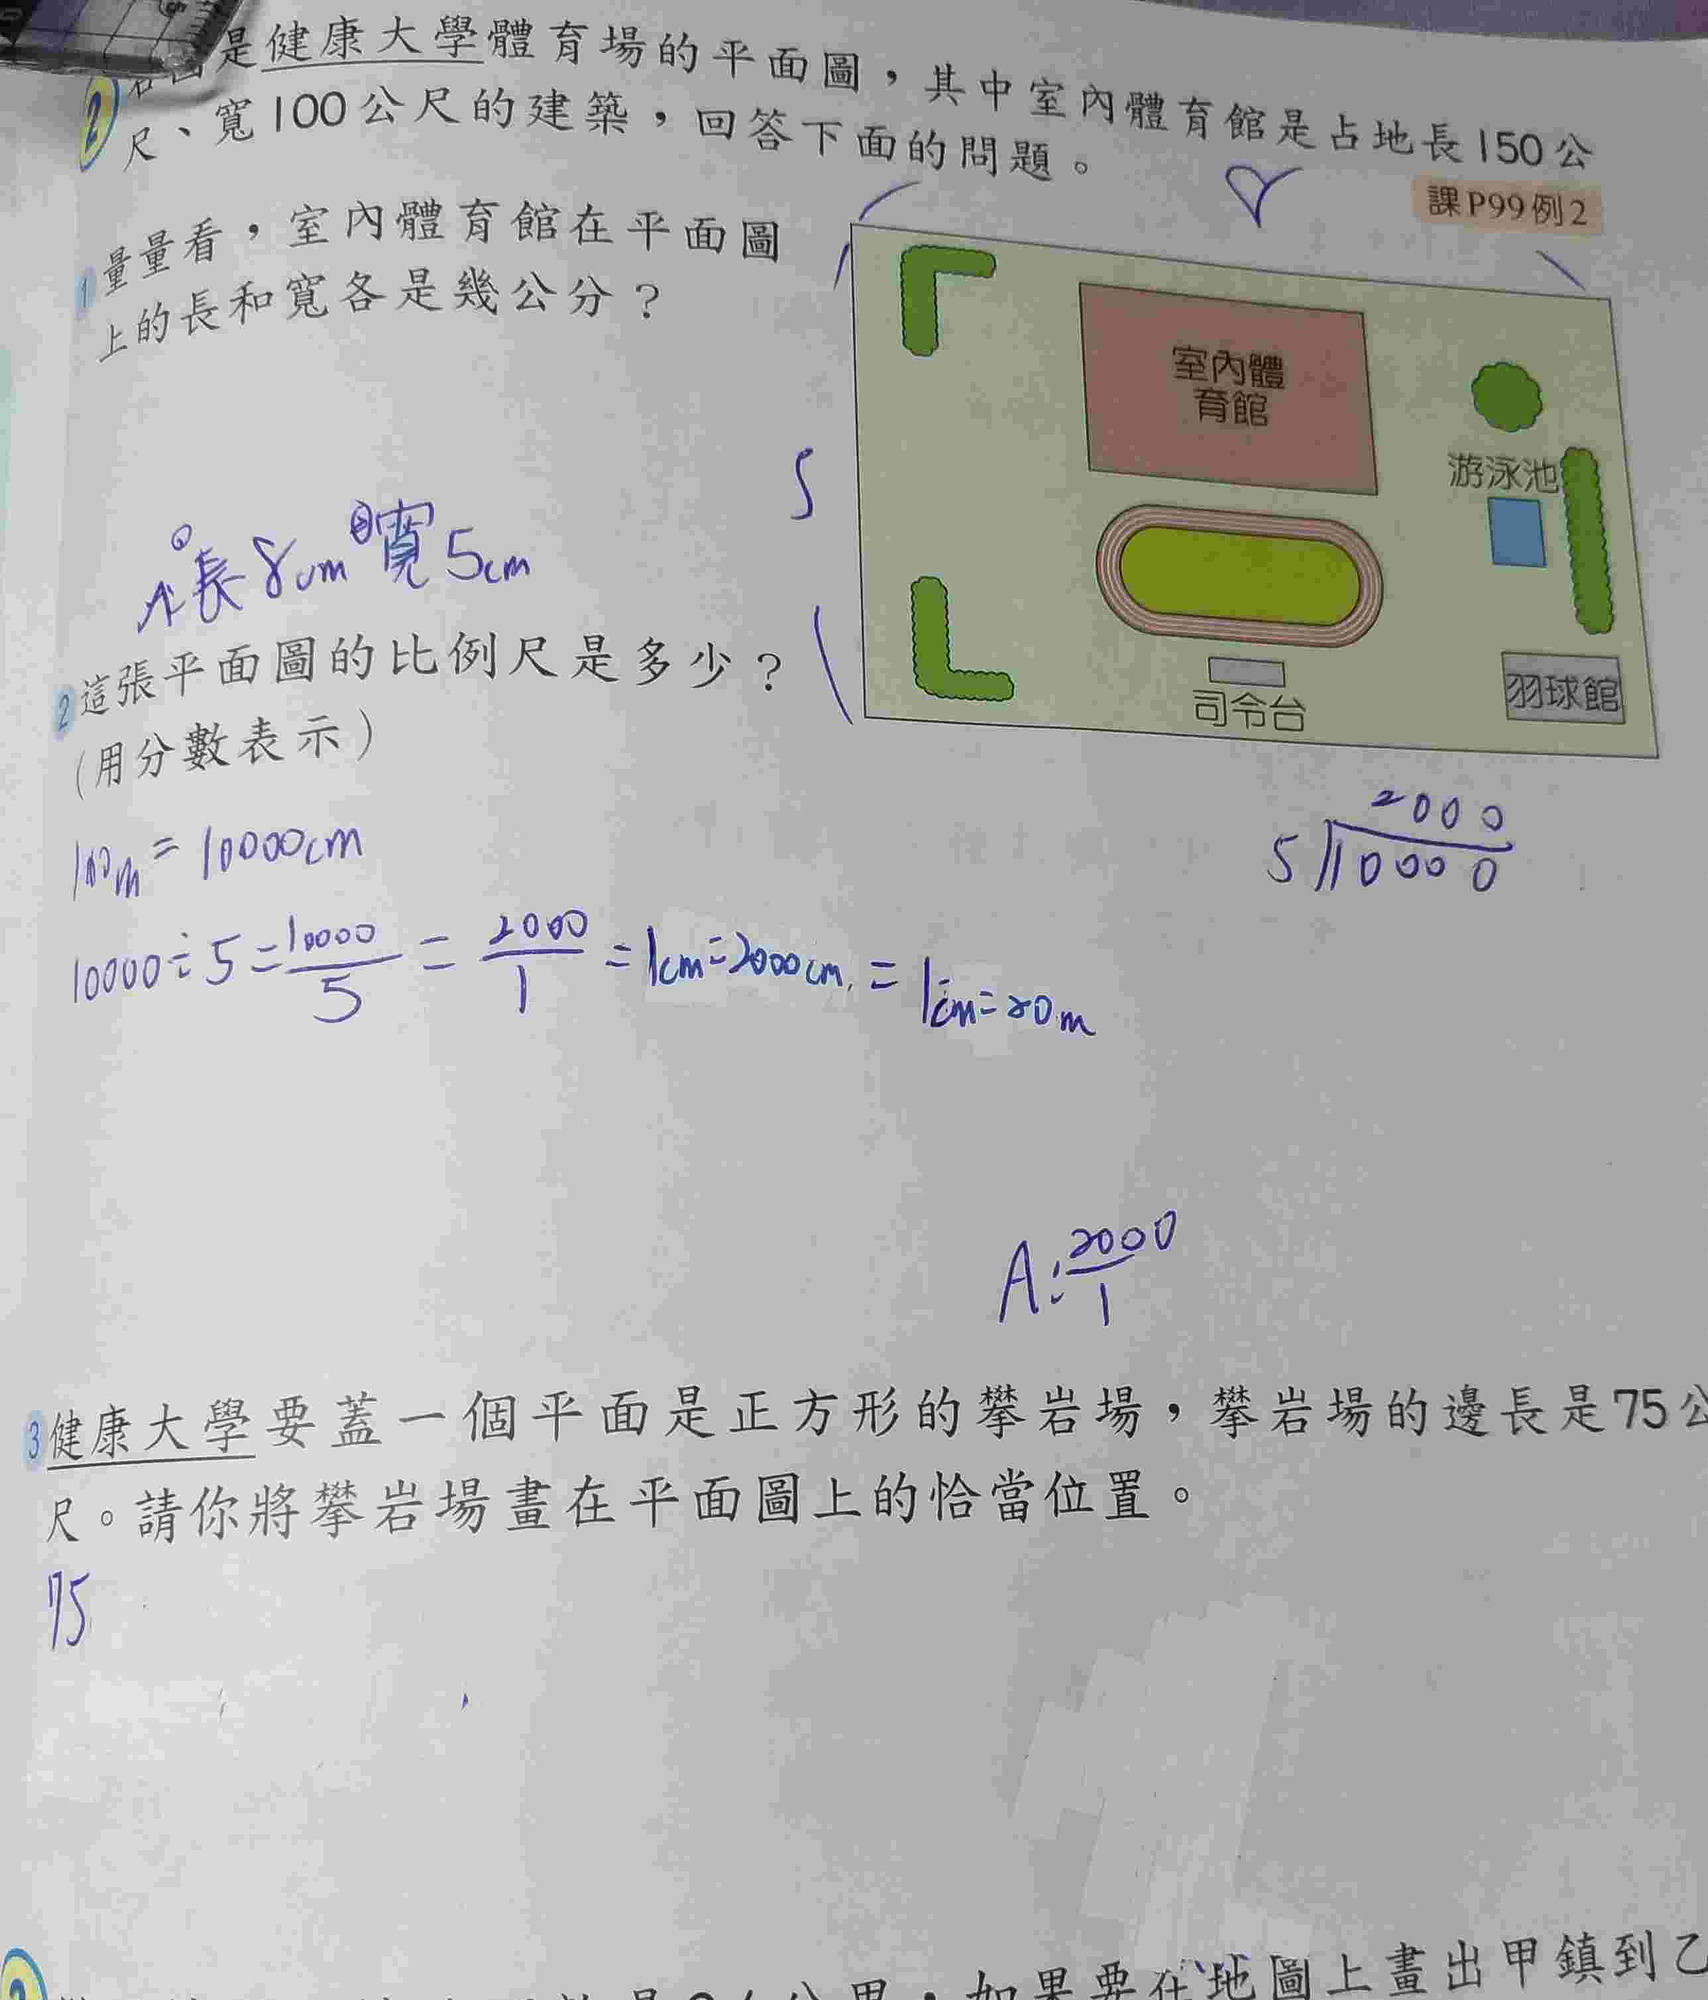 2 是健康大學體育場的平面圖，其中室內體育館是占地長150公
尺、寬100公尺的建築，回答下面的問題。
課P99例2
1 量量看，室內體育館在平面圖
上的長和寬各是幾公分？
室內體
育館
游泳池
羽球館
司令台
8
5
A:長8cm 寬5cm
2 這張平面圖的比例尺是多少？
(用分數表示)
100m=10000cm
10000÷5=10000/5=2000/1=1cm=2000cm.=1cm=20m
2000
5 10000
A:2000/1
3 健康大學要蓋一個平面是正方形的攀岩場，攀岩場的邊長是75公
尺。請你將攀岩場畫在平面圖上的恰當位置。
75
公里，如果要在地圖上畫出甲鎮到乙